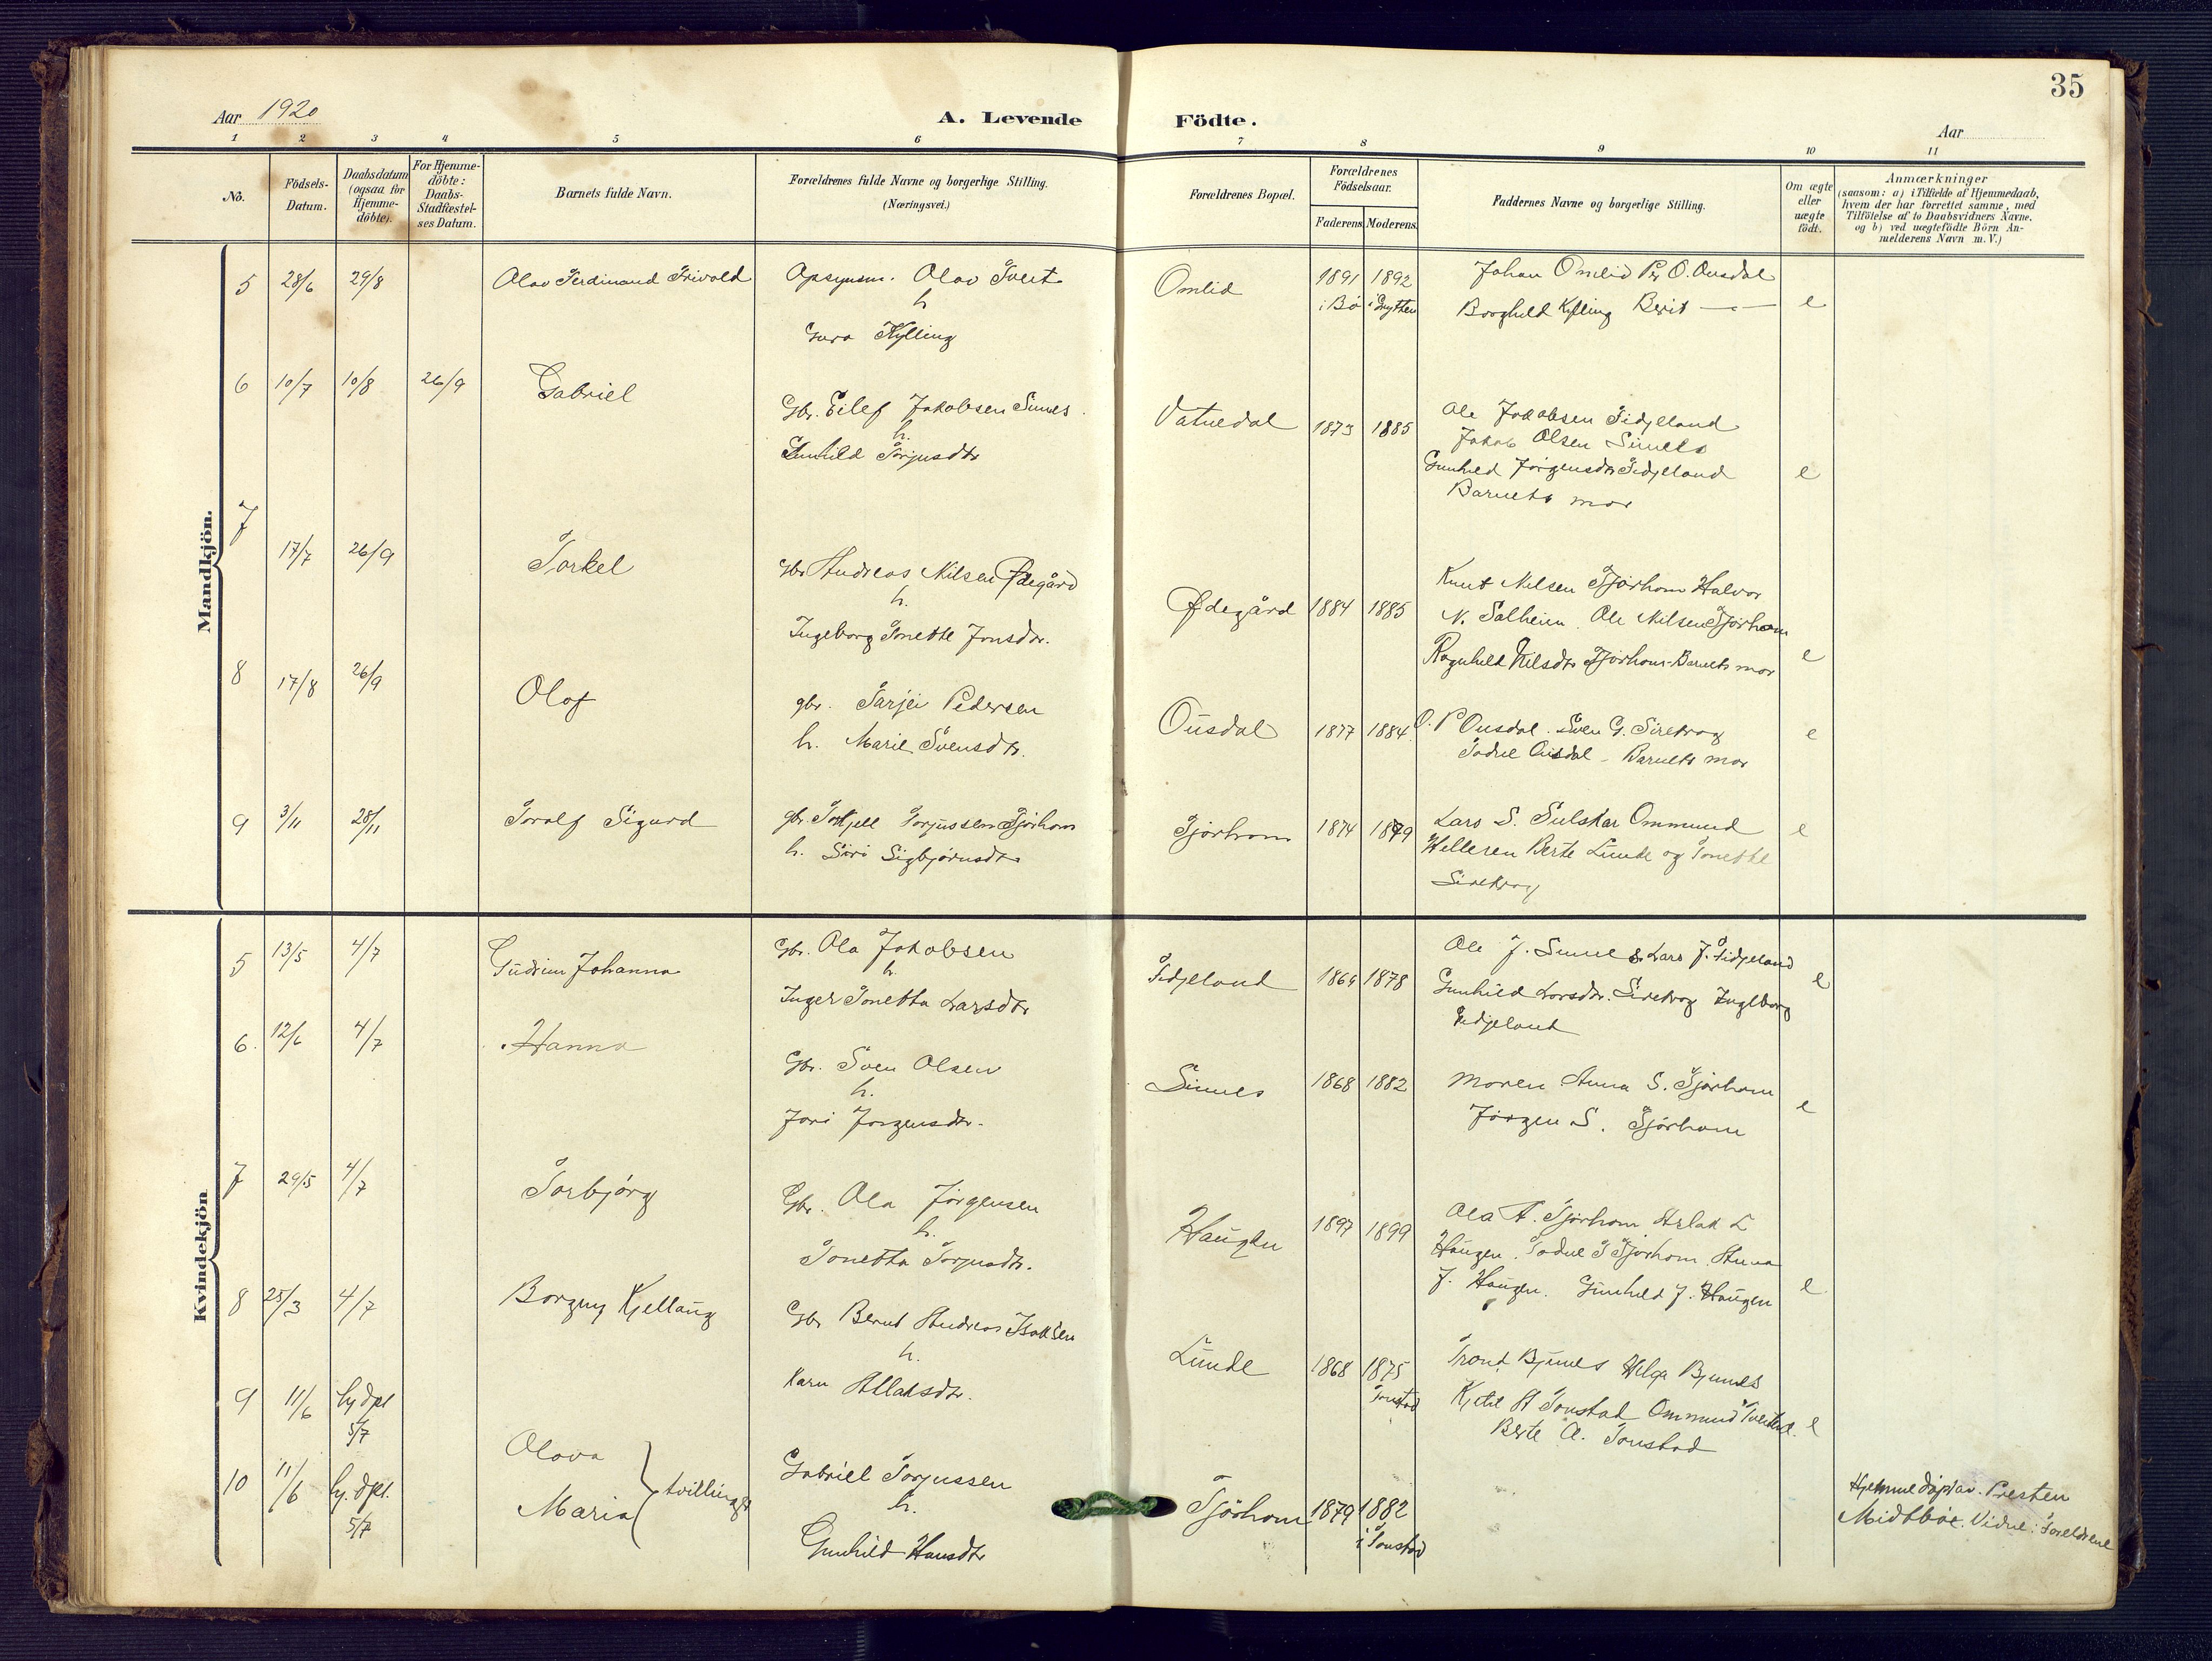 35
Aar 1920
A. Levende Födte.
Aar
1 2 3 4 5 6 7 8 9 10 11
No.
Födsels-
Datum.
Daabsdatum
(ogsaa for
Hjemme-
döbte).
For Hjemme-
döbte:
Daabs-
Stadfæstel-
ses Datum.
Barnets fulde Navn.
Forældrenes fulde Navne og borgerlige Stilling.
(Næringsvei.)
Forældrenes Bopæl.
Forældrenes
Födselsaar.
Faderens Moderens.
Faddernes Navne og borgerlige Stilling.
Om ægte
eller
uægte
födt.
Anmærkninger
(saasom: a) i Tilfælde af Hjemmedaab,
hvem der har forrettet samme, med
Tilföielse af to Daabsvidners Navne,
og b) ved uægtefödte Börn An-
melderens Navn m. V.)
Mandkjön.
5 28/6 29/8 Olav Ferdinand Trivold Opsynsm. Olav Tveit Omlid 1891 1892 Johan Omlid O. Ousdal
h i Bö Borghild Kylling Berit e
Guro Kylling
6 10/7 10/8 26/9 Gabriel Gbr. Eilef Jakobsen Sines Vatnedal 1873 1885 Ole Jakobsen Fidjeland
h. Jakob Olsen Sines
Gunhild Torjusdtr Gunhild Jörgensdtr Fidjeland e
Barnets mor
7 17/7 26/9 Torkel gbr Andreas Nilsen Ødegård Ødegård 1884 1885 Knut Nilsen Tjörhom Halvor
h. N. Salheim. Ole Nilsen Tjörhom
Ingeborg Tonette Jonsdtr. Ragnhild Nilsdtr Tjörhom Barnets mor e
8 17/8 26/9 Olaf gbr. Tarjei Pedersen Ousdal 1877 1884 O. P Ousdal. Sven G. Sirekrog e
h. Marie Svensdtr. Ousdal - Barnets mor
9 3/11 28/11 Toralf Sigurd gbr. Torkjell Torjussen Tjörhom Tjörhom 1874 1879 Lars S. Ommund e
h. Siri Sigbjörnsdtr Helleren Berte Lunde og Tonette
Sirekrog
Kvindekjön
5 13/5 4/7 Gudrun Johanna Gbr. Ola Jakobsen Fidjeland 1864 1878 Ole J. Sines Lars J. Fidjeland e
h. Gunhild Larsdtr. Sirekrog Ingeborg
Inger Tonetta Larsdtr Fidjeland
6. 12/6 4/7 Hanna Gbr. Sven Olsen Sines 1868 1882 Moren Anna S. Tjörhom
h. Jörgen S. Tjörhom e
Jori Jörgensdtr.
7 29/5 4/7 Torbjörg Gbr. Ola Jörgensen Haugen 1897 1899 Ola A. Tjörhom Aslak L
h. Haugen. Tjörhom. Anna
Tonetta Torjusdtr. J. Haugen. Gunhild J. Haugen e
8 25/3 4/7 Borgny Kjellaug Gbr Bernt Andreas Isaksen Lunde 1868 1875 Tront Bjunes Helga Bjunes
h. Tonstad Kjetil A Tonstad Ommund e
Karn Aslaksdtr. Berte A. Tonstad
9 11/6 hj dpt 5/7 Olava
10 11/6 hj. dpt. 5/7 Maria tvillinger Gabriel Torjussen Tjörhom 1879 1882 Hjemmedöpt av. Presten
h. i Tonstad Midtböe. Vidne: Foreldrene
Gunhild Hansdtr